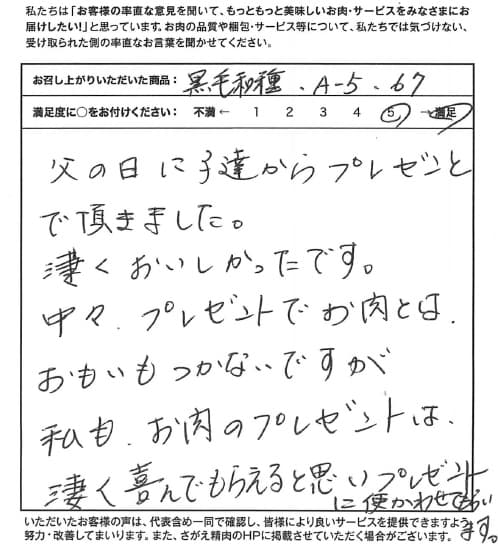 私たちは「お客様の率直な意見を聞いて、もっともっと美味しいお肉・サービスをみなさまにお
届けしたい!」と思っています。お肉の品質や梱包・サービス等について、私たちでは気づけない、
受け取られた側の率直なお言葉を聞かせてください。
お召し上がりいただいた商品: 黒毛和種.A-5.67
満足度に○をお付けください: 不満 ← 1 2 3 4 5 → 満足
父の日に子達からプレゼント
で頂きました。
凄くおいしかったです。
中々、プレゼントでお肉とは、
おもいもつかないですが
私も、お肉のプレゼントは、
凄く喜んでもらえると思いプレゼント
に使かわせてもらい
ます。
いただいたお客様の声は、代表含め一同で確認し、皆様により良いサービスを提供できますよう
努力・改善してまいります。また、さがえ精肉のHPに掲載させていただく場合がございます。